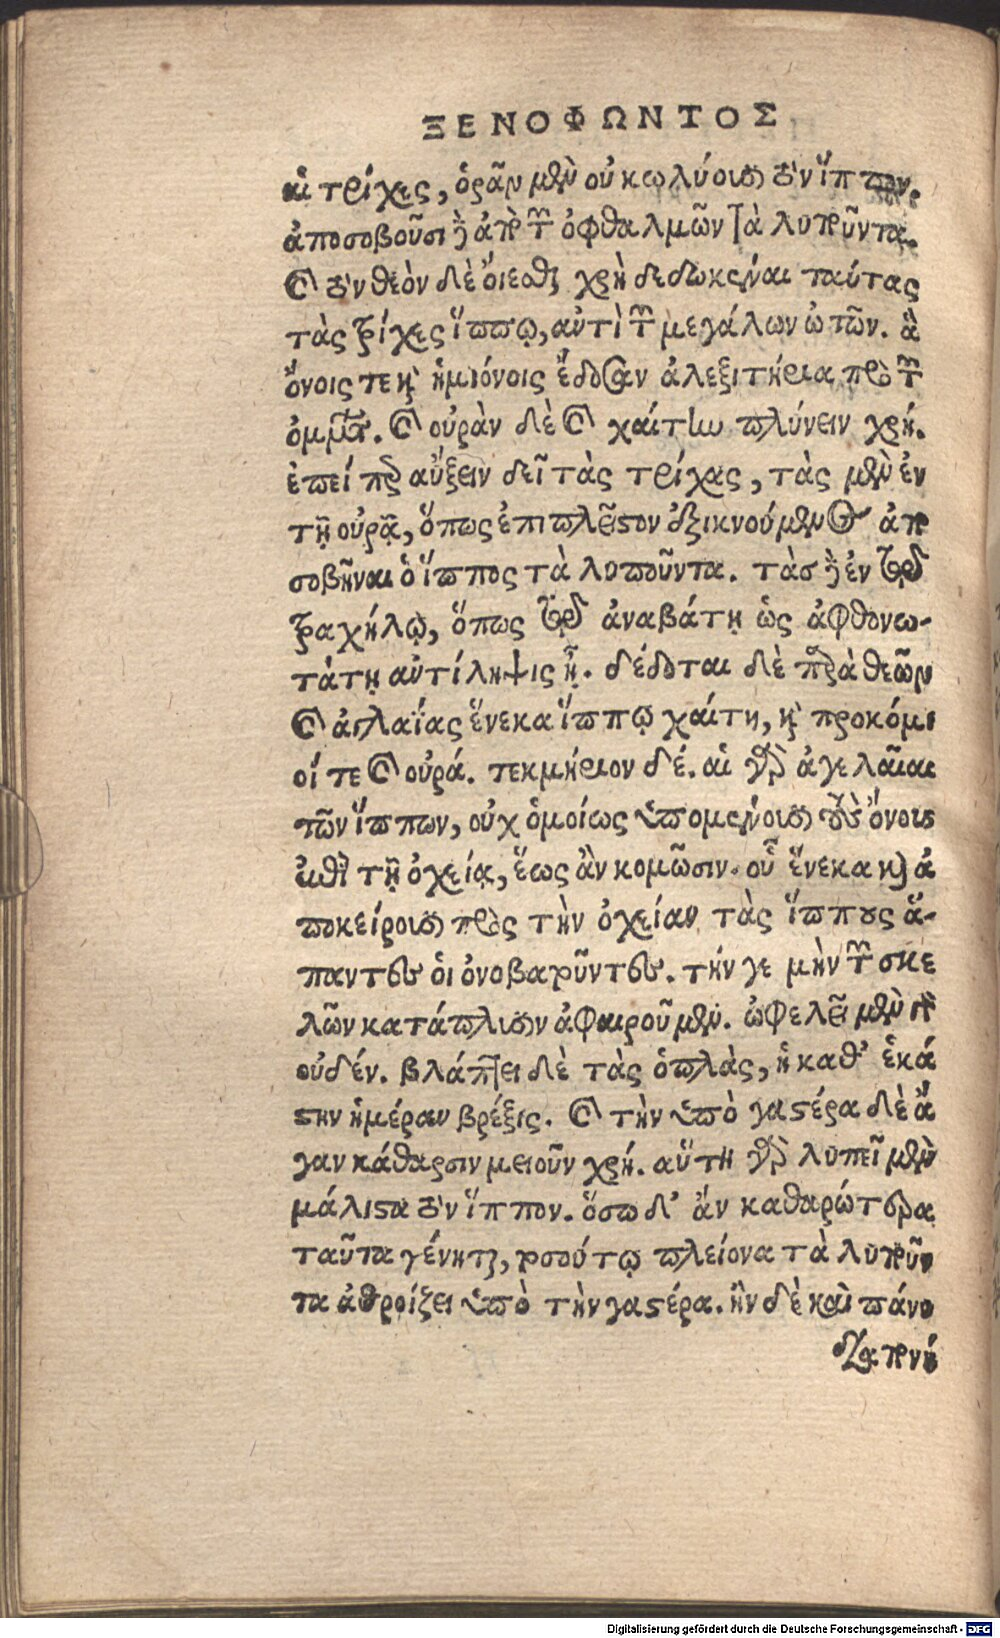 ΞΕΝΟΦΩΝΤΟΣ
αἱ τρίχες, ὁρᾶν μὲν οὐ κωλύουσι τὸν ἵππον,
ἀποσοβοῦσι δὲ ἀπὸ τῶν ὀφθαλμῶν τὰ λυποῦντα.
καὶ τὸν θεὸν δὲ οἴεσθαι χρὴ δεδωκέναι ταύτας
τὰς τρίχες ἵππῳ, αὐτὶ τῶν μεγάλων ὠτῶν. ἃ
ὄνοις τε καὶ ἡμιόνοις ἔδοσαν ἀλεξιτήρια πρὸ τῶν
ὀμμάτων. καὶ οὐρὰν δὲ καὶ χαίτην πλύνειν χρή.
ἐπεί περ αὔξειν δεῖ τὰς τρίχας, τὰς μὲν ἐν
τῇ οὐρᾷ, ὅπως ἐπὶ πλεῖστον ἐξικνούμενος ἀπο
σοβῆναι ὁ ἵππος τὰ λυποῦντα. τὰς δὲ ἐν τῷ
τραχήλῳ, ὅπως τῷ ἀναβάτῃ ὡς ἀφθονω-
τάτη αὐτίληψις ᾖ. δέδοται δὲ παρὰ θεῶν
καὶ ἀγλαΐας ἕνεκα ἵππῳ χαίτη, καὶ προκόμι
οί τε καὶ οὐρά. τεκμήριον δέ. αἱ γὰρ ἀγελαῖαι
τῶν ἵππων, οὐχ ὁμοίως ὑπομένουσι τοὺς ὄνους
ἐπὶ τῇ ὀχείᾳ, ἕως ἂν κομῶσιν. οὗ ἕνεκα καὶ ἀ
ποκείρουσι πρὸς τὴν ὀχείαν τὰς ἵππους ἅ-
παντες οἱ ὀνοβατοῦντες. τήν γε μὴν τῶν σκε
λῶν κατάπλυσιν ἀφαιροῦμεν. ὠφελεῖ μὲν γὰρ
οὐδέν. βλάπτει δὲ τὰς ὁπλὰς, ἡ καθ' ἑκά
στην ἡμέραν βρέξις. καὶ τὴν ὑπὸ γαστέρα δὲ ἄ
γαν κάθαρσιν μειοῦν χρή. αὕτη γὰρ λυπεῖ μὲν
μάλιστα τὸν ἵππον. ὅσῳ δ' ἂν καθαρώτερα
ταῦτα γένηται, τοσούτῳ πλείονα τὰ λυποῦν
τα ἀθροίζει ὑπὸ τὴν γαστέρα. ἢν δὲ καὶ πάνυ
διαπονή
Digitalisierung gefördert durch die Deutsche Forschungsgemeinschaft - DFG